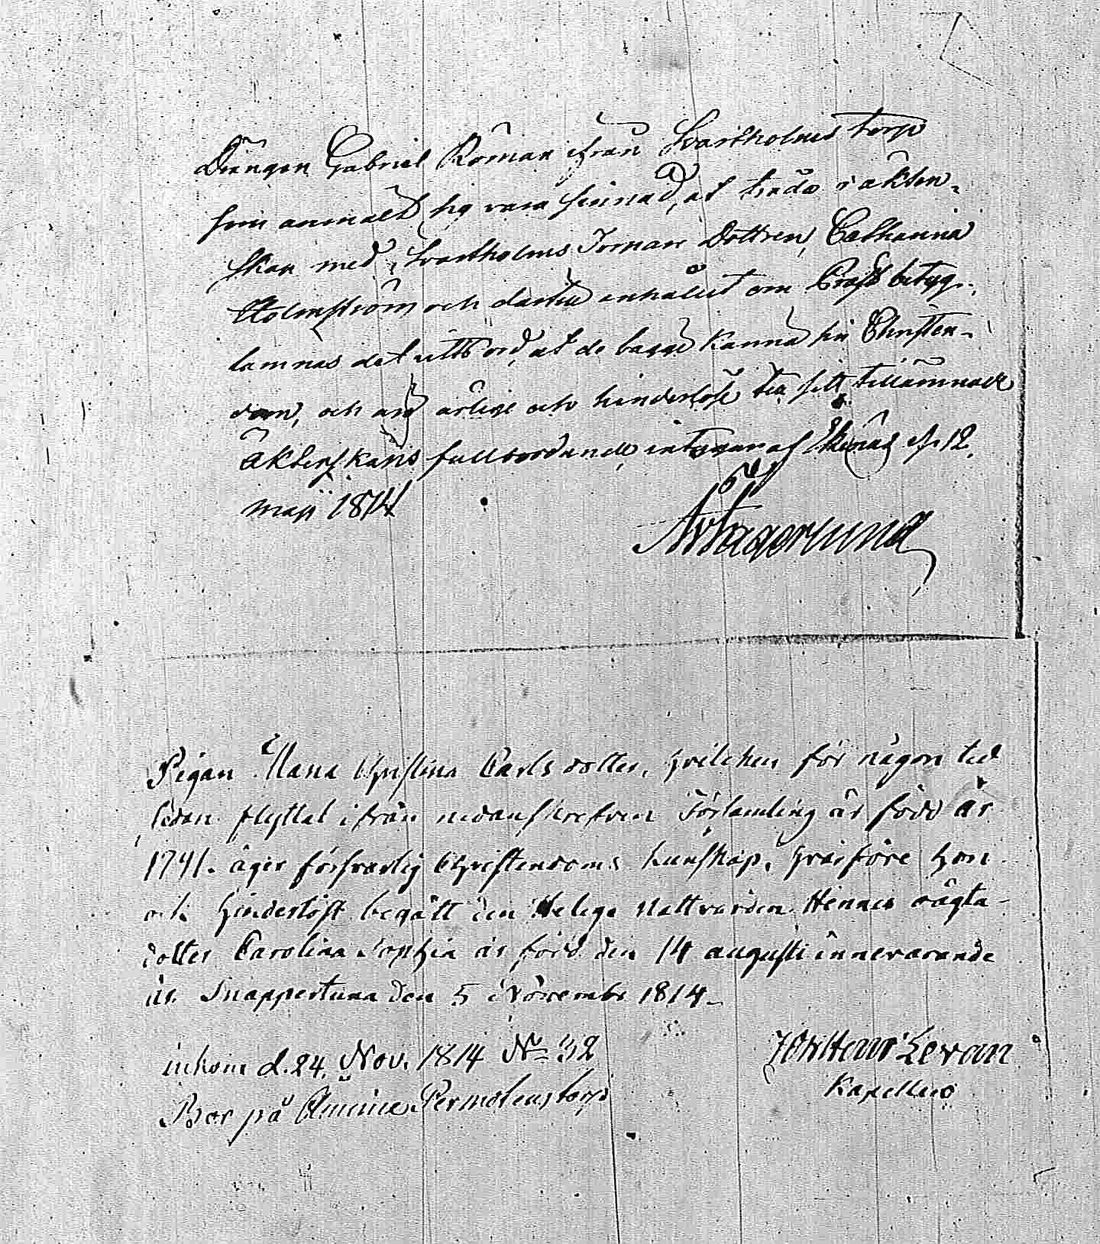 Drängen Gabriel Roman ifrån Svartholms torp
som anmält sig vara sinnad, at träda i äkten-
skap med Svartholms Dottren, Catharina
Holmström och anhållit om betyg,
lämnas det vittsord, at de bägge känna sin Christen-
dom, och äro och hinderlöse till sitt tillämnade
Äktenskaps fullbordande d. 12
maji 1814
Pigan Maria Christina Carlsdotter, hvilken för någon tid
sedan flyttat ifrån nedanskrefven Församling är född år
1791. äger försvarlig Christendoms kunskap, hvarföre hon
och hinderlöst begått den Helega Nattvarden. Hennes oägta
dotter Carolina Sophia är född den 14 augusti innevarande
år. Snappertuna den 5 November 1814
inkom d. 24. Nov. 1814 No 32
Bor på torp
Levan
Kapellan